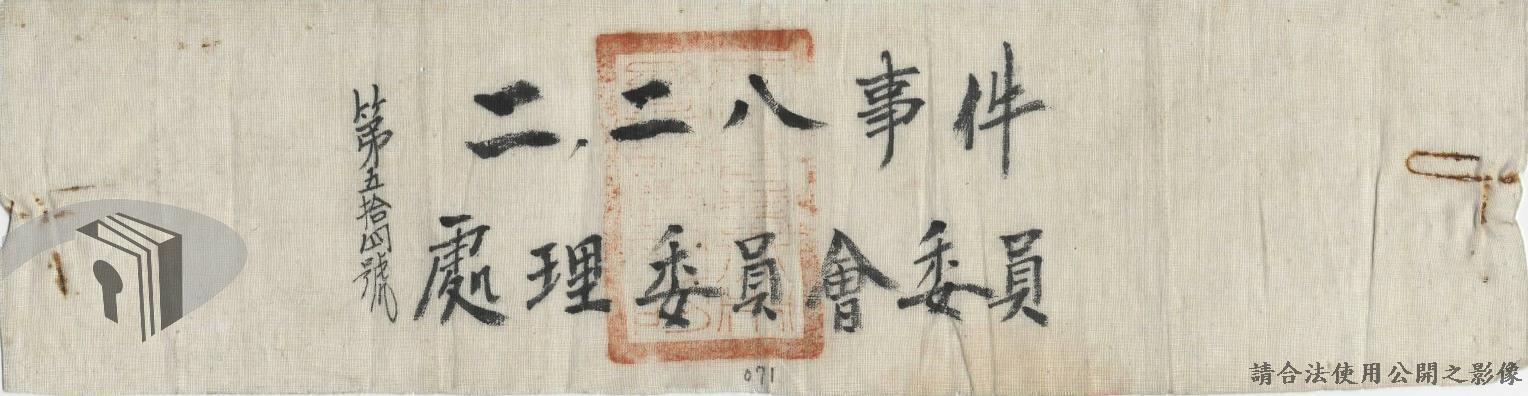 二,二八事件
處理委員會委員
第五拾四號
071
請合法使用公開之影像